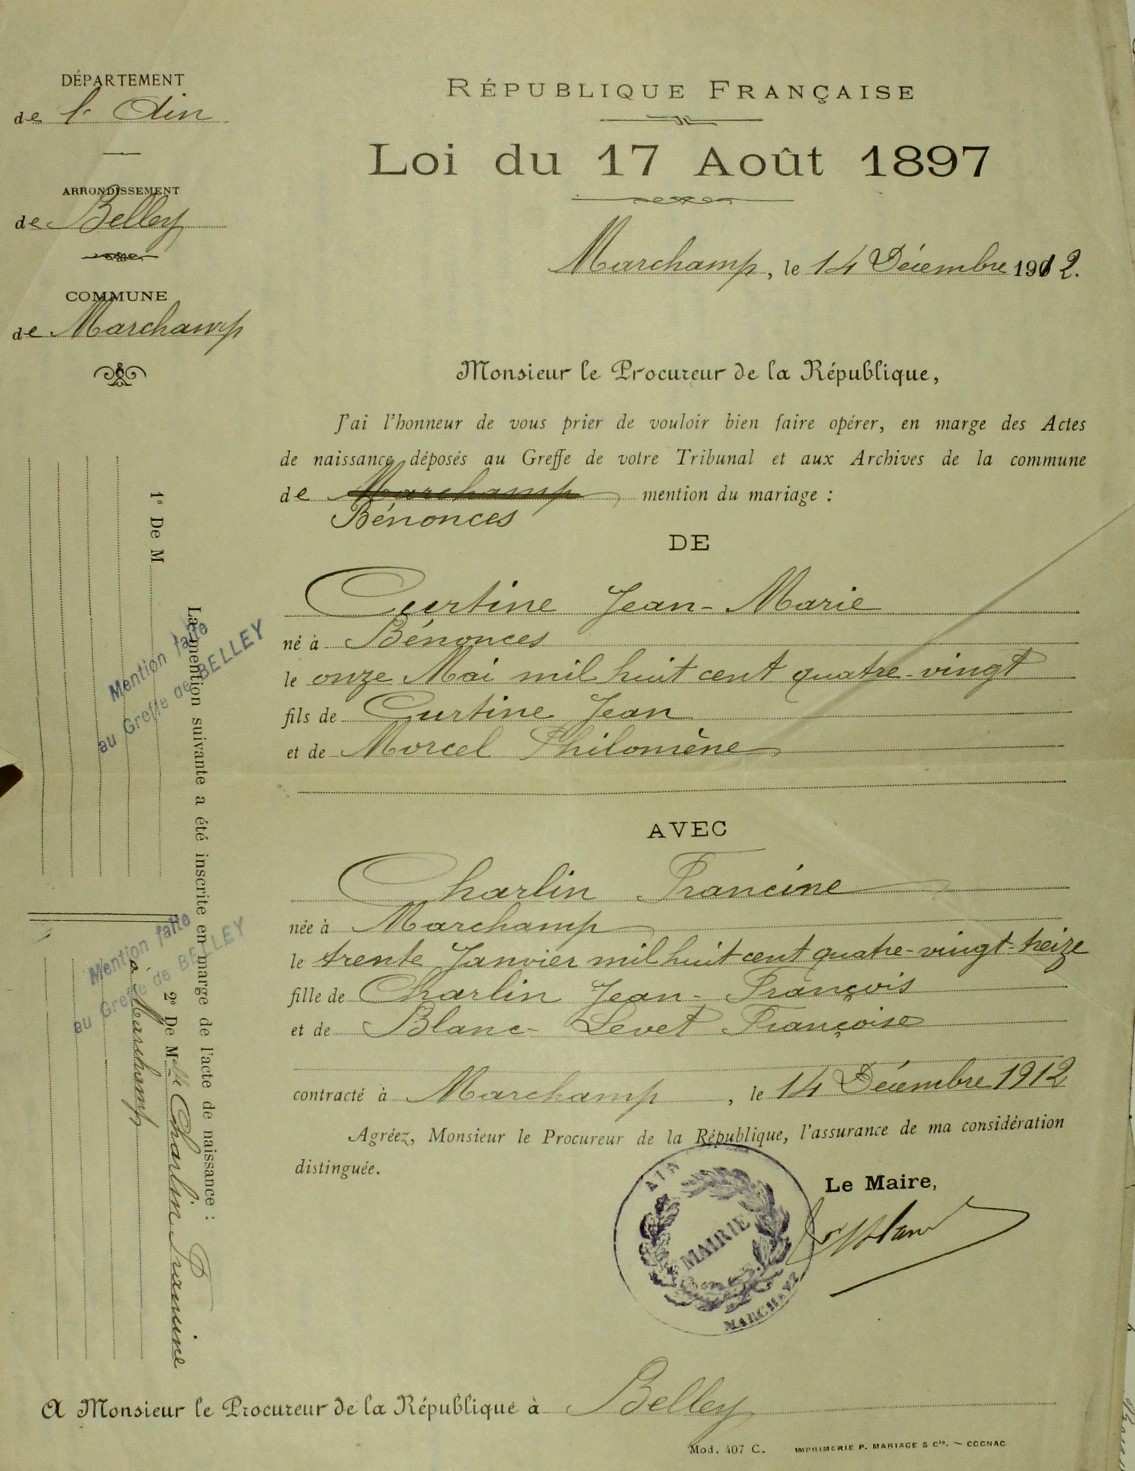 DÉPARTEMENT
de l'Ain
ARRONDISSEMENT
de Belley
COMMUNE
de Marchamp
RÉPUBLIQUE FRANÇAISE
Loi du 17 Août 1897
Marchamp, le 14 Décembre 1912.
Monsieur le Procureur de la République,
J'ai l'honneur de vous prier de vouloir bien faire opérer, en marge des Actes
de naissance déposés au Greffe de votre Tribunal et aux Archives de la commune
de Marchamp mention du mariage :
Bénonces
DE
Curtine Jean-Marie
né à Bénonces
le onze Mai mil huit cent quatre-vingt
fils de Curtine Jean
et de Morcel Philomène
AVEC
Charlin Francine
née à Marchamp
le trente Janvier mil huit cent quatre-vingt-treize
fille de Charlin Jean-François
et de Blanc-Levet Françoise
contracté à Marchamp, le 14 Décembre 1912
Agréez, Monsieur le Procureur de la République, l'assurance de ma considération
distinguée.
Le Maire,
AIN
MAIRIE
A Monsieur le Procureur de la République à Belley
Mod. 407 C. IMPRIMERIE P. MARIAGE & Cie. — COGNAC
La mention suivante a été inscrite en marge de l'acte de naissance :
1º De M
Mention faite
au Greffe de BELLEY
2º De Melle Charlin Francine
à Marchamp
Mention faite
au Greffe de BELLEY